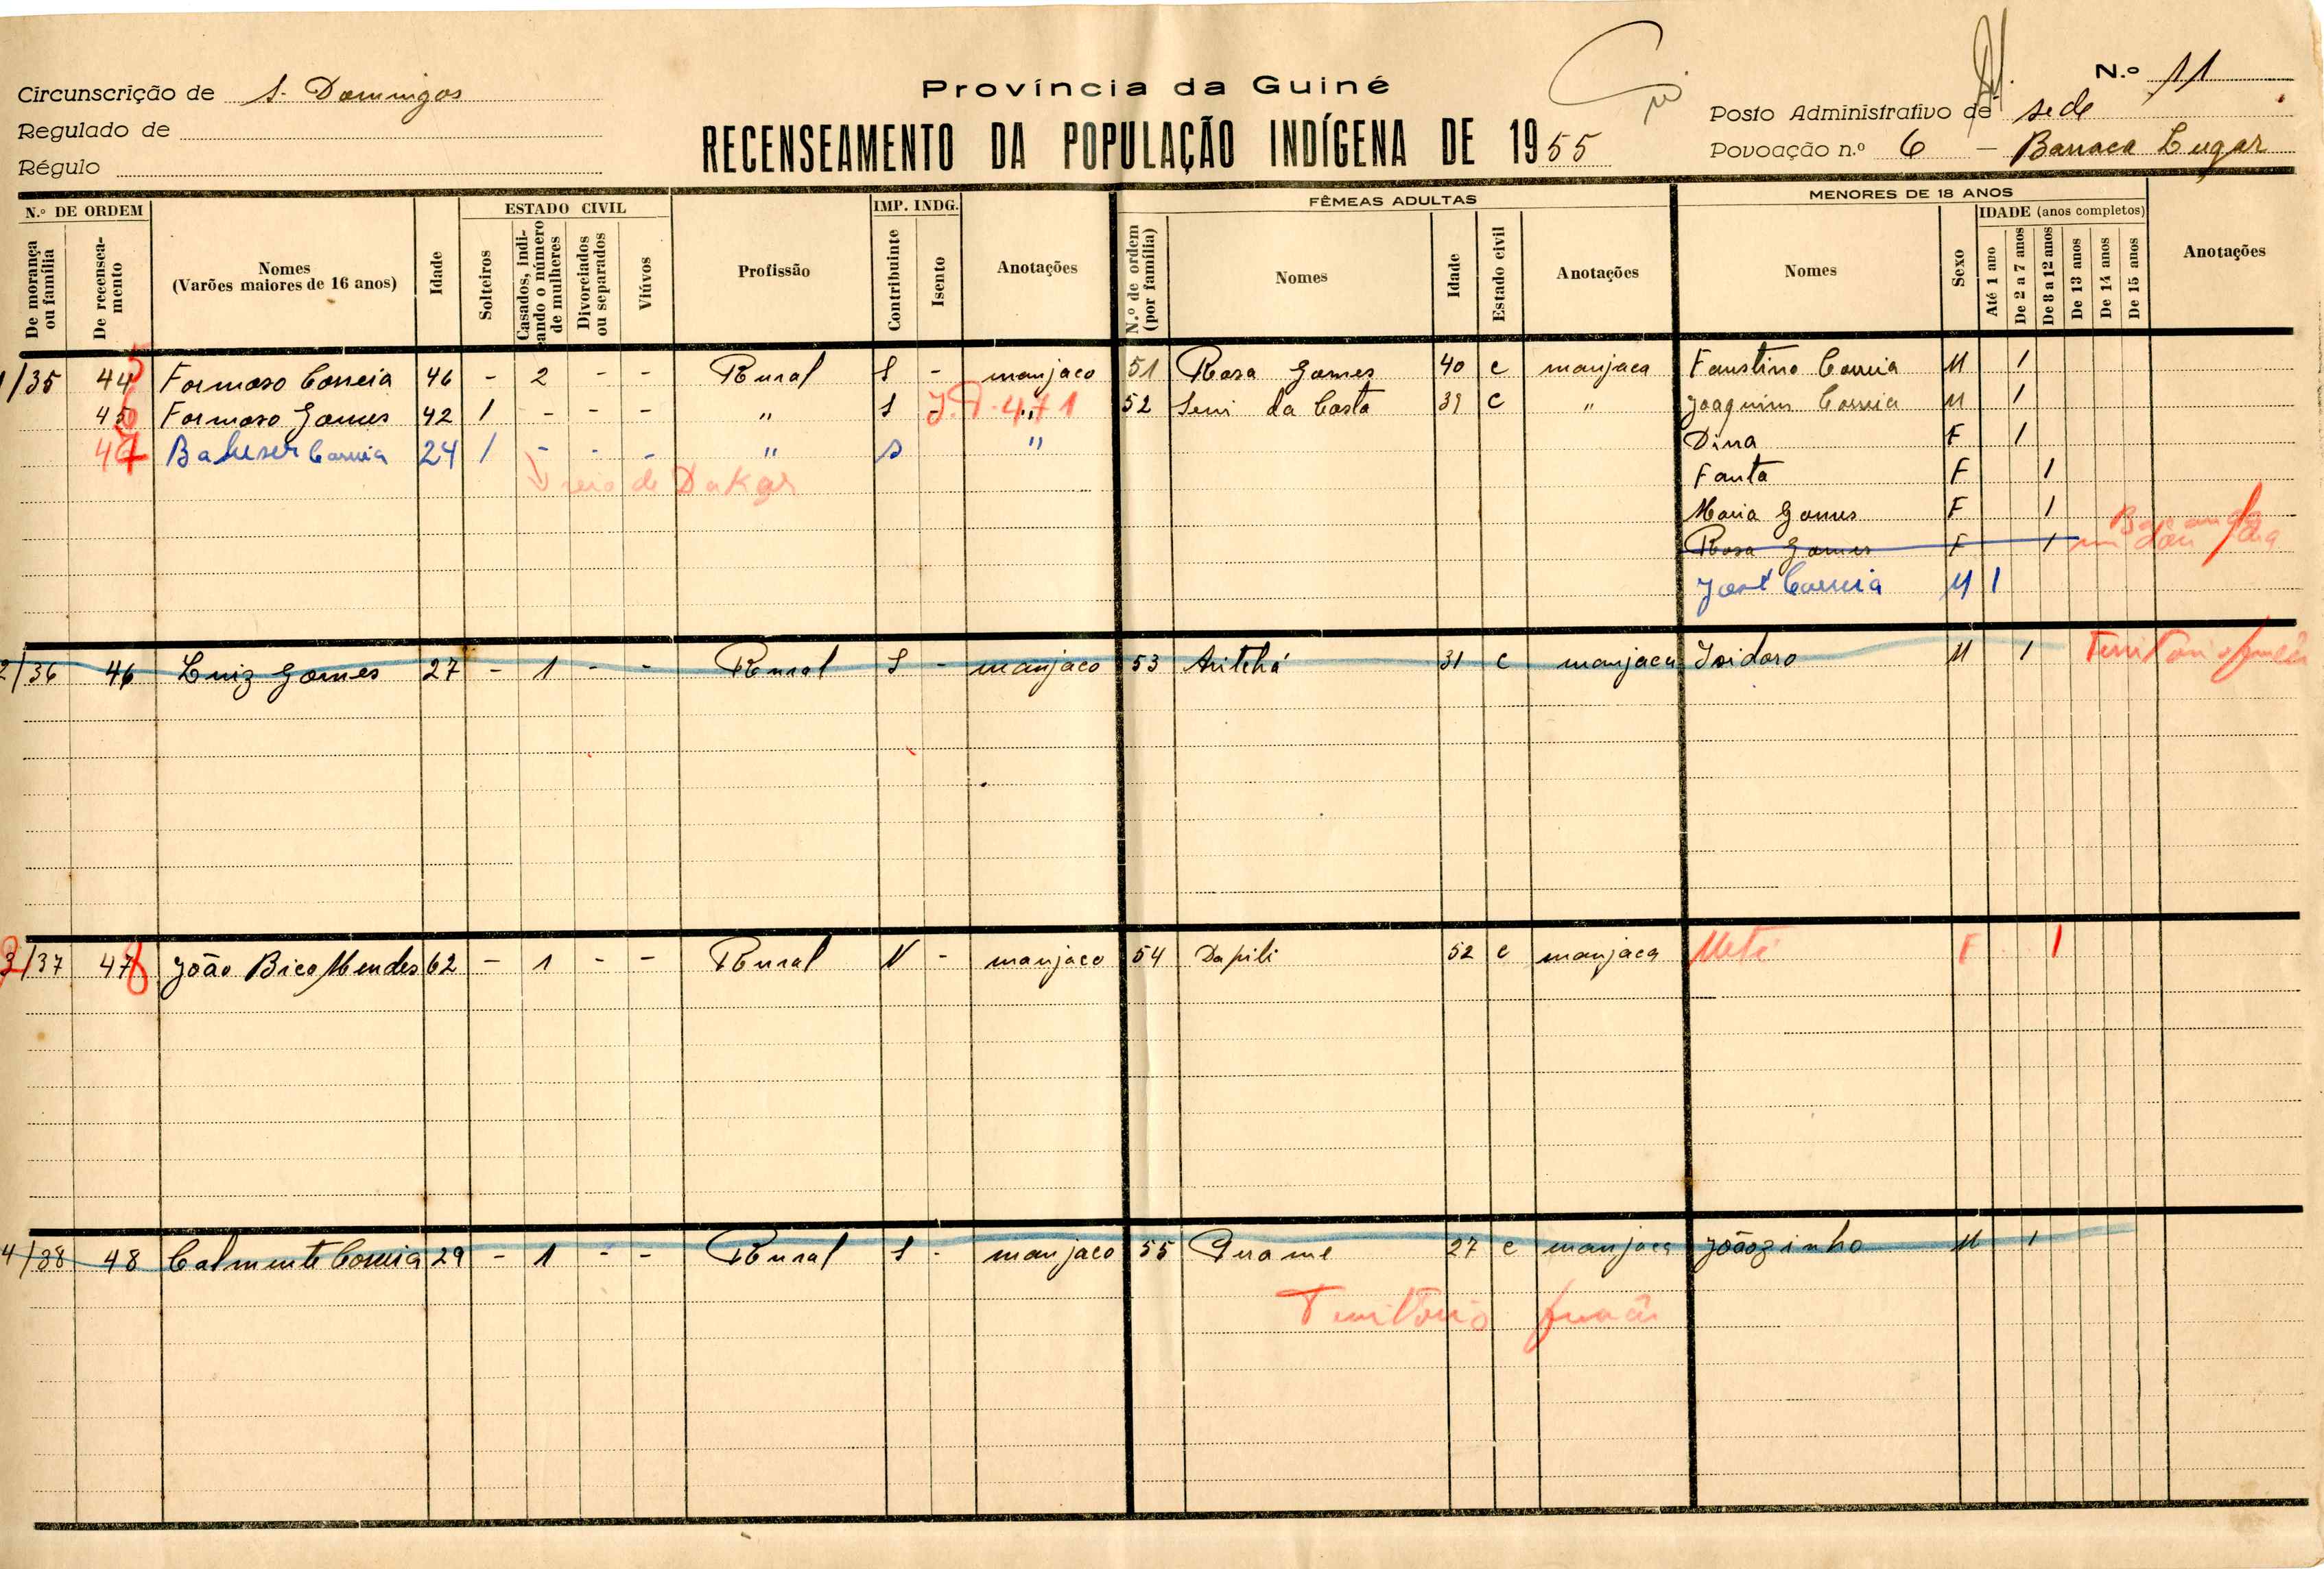 Província da Guiné
N.º 11
Circunscrição de S. Domingos
Posto Administrativo de sede
Regulado de
RECENSEAMENTO DA POPULAÇÃO INDÍGENA DE 1955
Povoação n.º 6 — Barraca Lugar
Régulo
N.º DE ORDEM
De morança ou família
De recenseamento
Nomes
(Varões maiores de 16 anos)
Idade
ESTADO CIVIL
Solteiros
Casados, indicando o número de mulheres
Divorciados ou separados
Viúvos
Profissão
IMP. INDG.
Contribuinte
Isento
Anotações
FÊMEAS ADULTAS
N.º de ordem (por família)
Nomes
Idade
Estado civil
Anotações
MENORES DE 18 ANOS
Nomes
Sexo
IDADE (anos completos)
Até 1 ano
De 2 a 7 anos
De 8 a 12 anos
De 13 anos
De 14 anos
De 15 anos
Anotações
1/35 44 5 Formoso Correia 46 - 2 - - Rural S - manjaco 51 Rosa Gomes 40 c manjaca Faustino Correia M 1
45 6 Formoso Gomes 42 1 - - - " S - " J.A. 471 52 Seni da Costa 39 c " Joaquim Correia M 1
46 7 Correia 24 1 - - - " s " Dina F 1
veio de Dakar Fanta F 1
Maria Gomes F 1
Rosa Gomes F 1
José Correia M 1
2/36 46 Luiz Gomes 27 - 1 - - Rural S - manjaco 53 Aritchá 31 c manjaca Isidoro M 1 Territorio
3/37 47 8 João Bico Mendes 62 - 1 - - Rural N - manjaco 54 Dapili 52 c manjaca Meté F 1
4/38 48 Calmente Correia 29 - 1 - - Rural S - manjaco 55 27 c manjaca Joãozinho M 1
Territorio